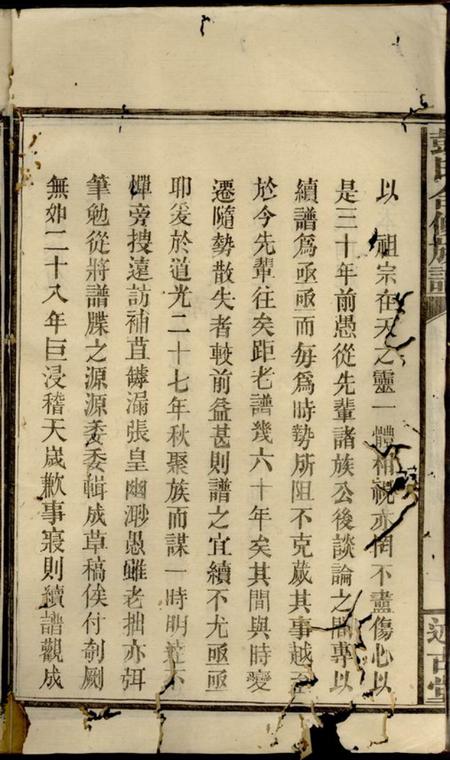 以 祖宗在天之靈一體相視亦罔不盡傷心以
是三十年前愚從先輩諸族公後談論之間專以
續譜爲亟亟而每爲時勢所阻不克蕆其事越至
於今先輩往矣距老譜幾六十年矣其間與時變
遷隨勢散失者較前益甚則譜之宜續不尤亟亟
耶爰於道光二十七年秋聚族而謀一時明達不
憚旁搜遠訪補苴罅漏張皇幽渺愚雖老拙亦弭
筆勉從將譜牒之源源委委輯成草稿俟付剞劂
無如二十八年巨浸稽天歲歉事寢則續譜觀成
氏合修族譜
述古堂